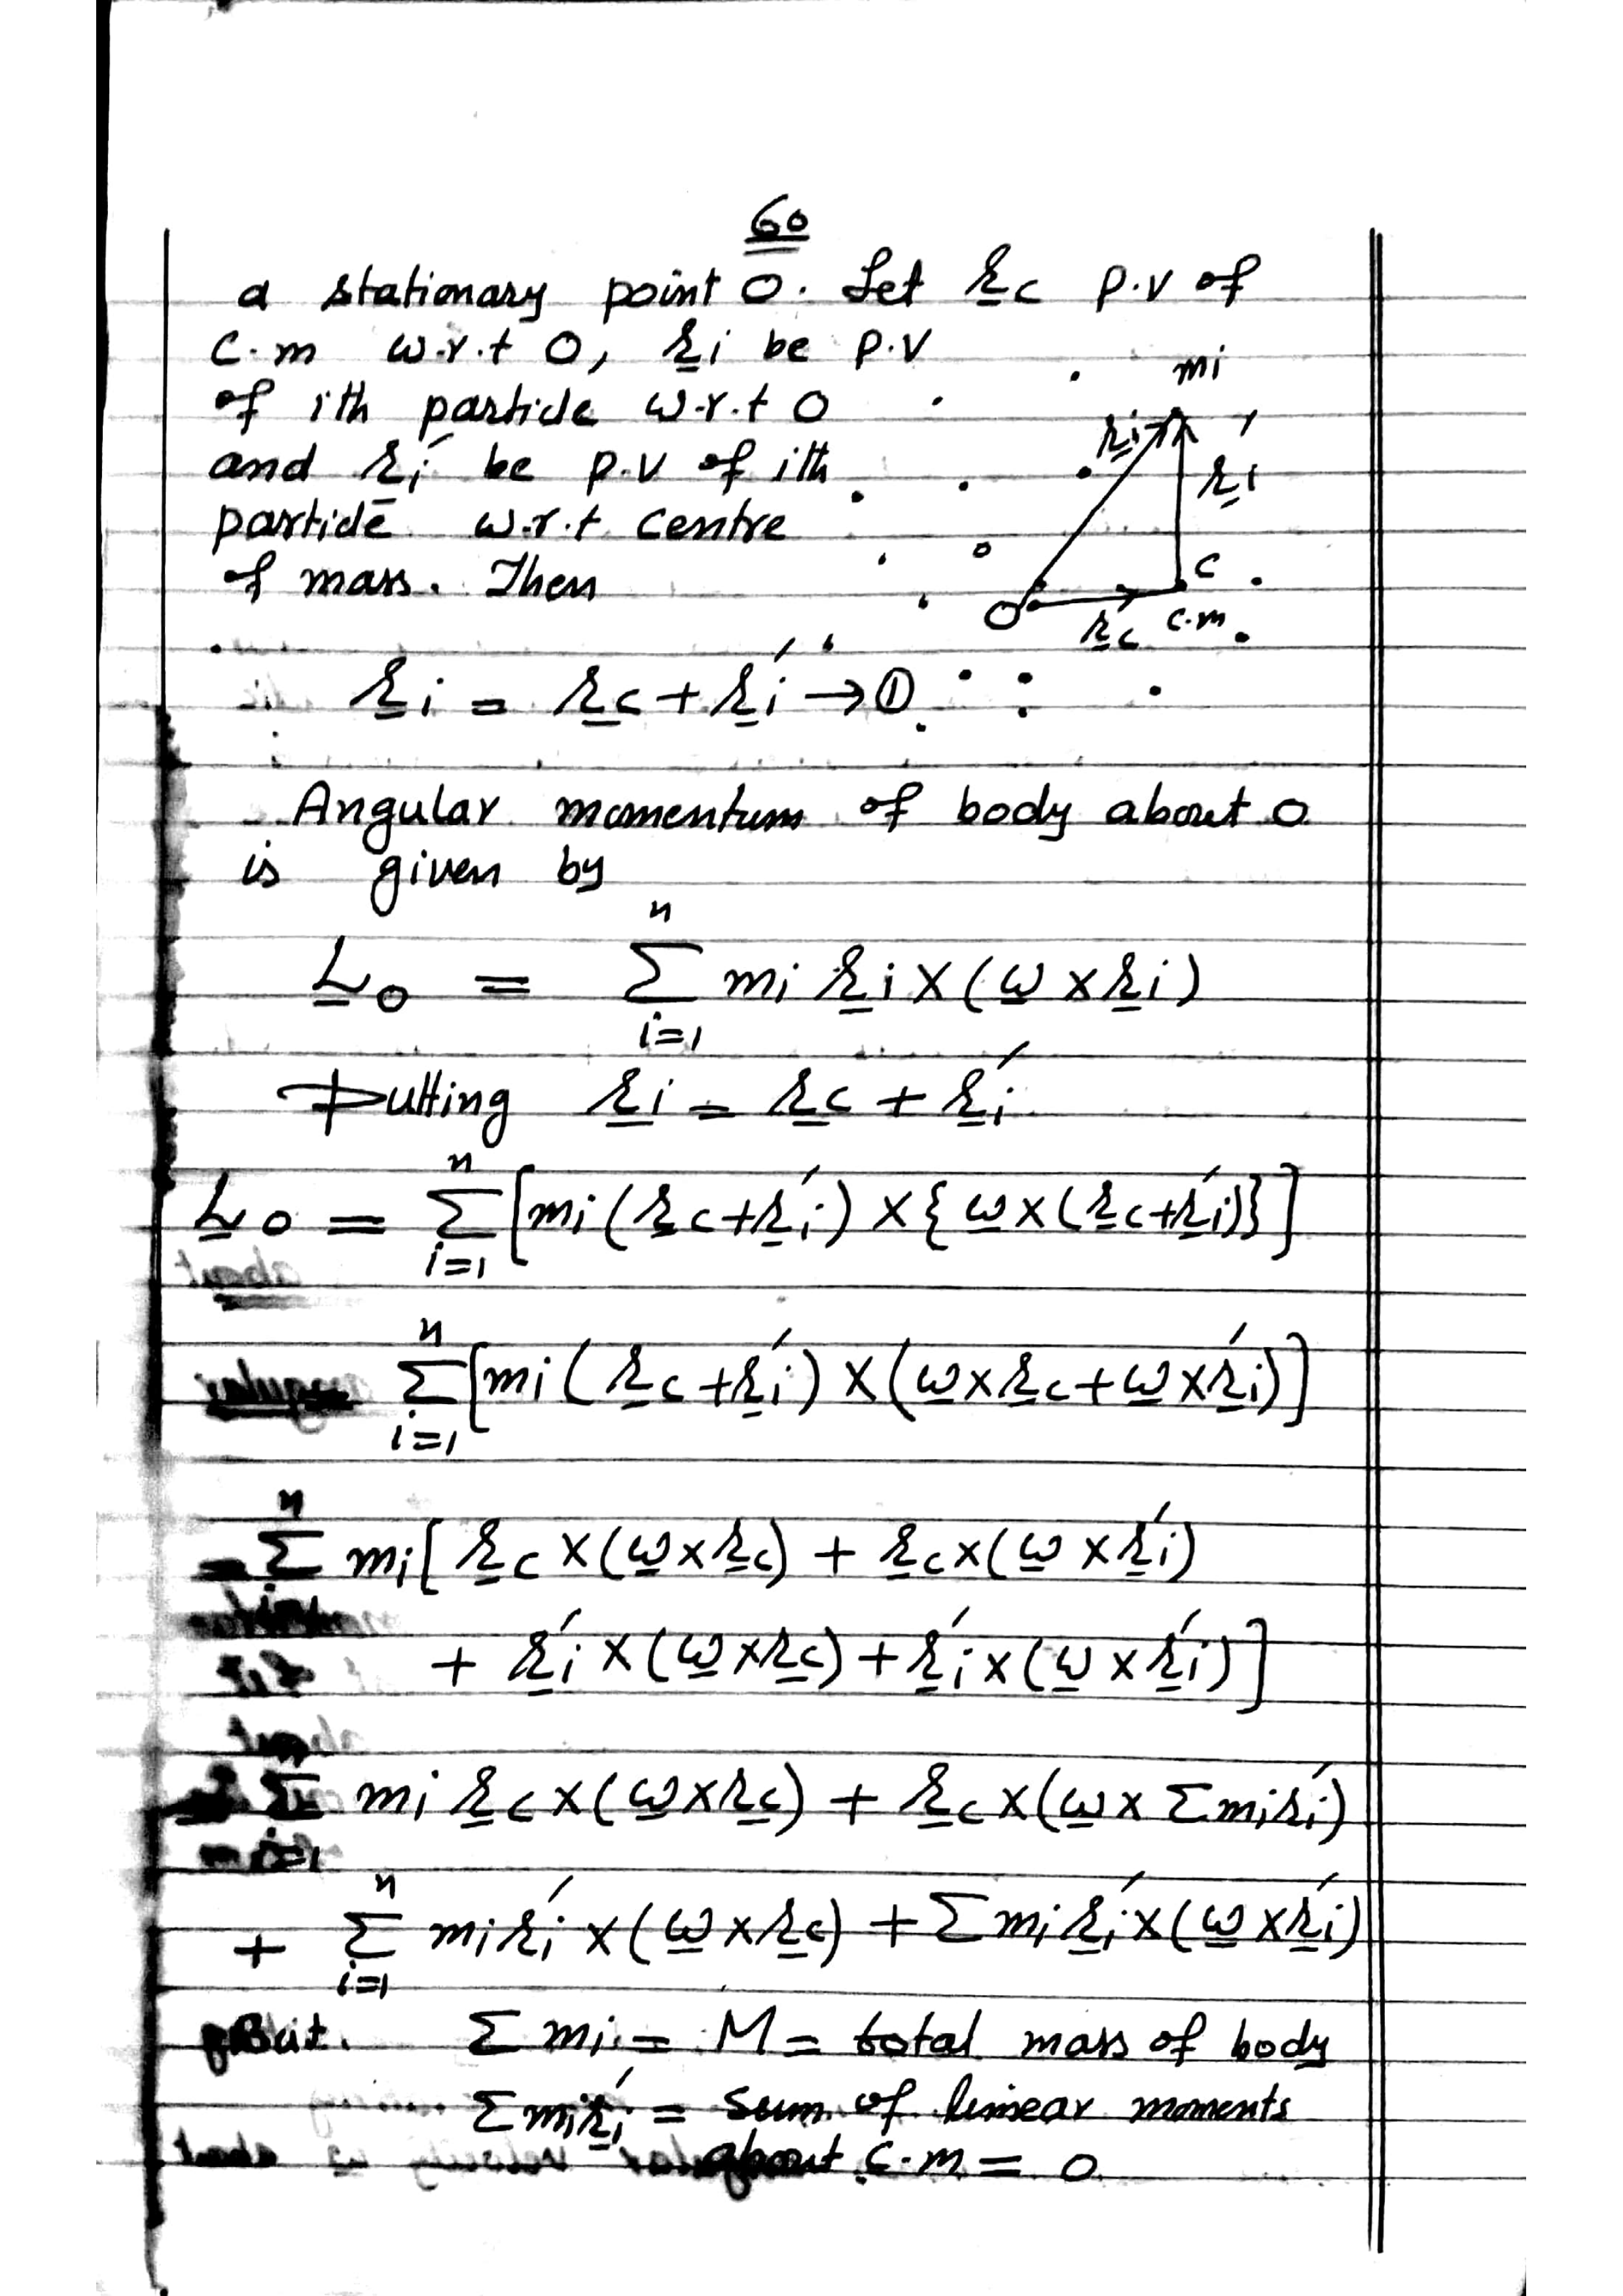 60
a stationary point O. Let r̲c p.v of
c.m w.r.t O, r̲i be p.v
of ith particle w.r.t O
and r̲i′ be p.v of ith
particle w.r.t centre
of mass. Then
mi
r̲i
r̲i′
C
O
r̲c
c.m
r̲i = r̲c + r̲i′ → ①
Angular momentum of body about O
is given by
L̲o = n Σ i=1 mi r̲i × (ω̲ × r̲i)
Putting r̲i = r̲c + r̲i′
L̲o = n Σ i=1 [mi (r̲c + r̲i′) × {ω̲ × (r̲c + r̲i′)}]
= n Σ i=1 [mi (r̲c + r̲i′) × (ω̲ × r̲c + ω̲ × r̲i′)]
= n Σ mi [r̲c × (ω̲ × r̲c) + r̲c × (ω̲ × r̲i′)
+ r̲i′ × (ω̲ × r̲c) + r̲i′ × (ω̲ × r̲i′)]
= n Σ i=1 mi r̲c × (ω̲ × r̲c) + r̲c × (ω̲ × Σ mi r̲i′)
+ n Σ i=1 mi r̲i′ × (ω̲ × r̲c) + Σ mi r̲i′ × (ω̲ × r̲i′)
But. Σ mi = M = total mass of body
Σ mi r̲i′ = sum of linear moments
about c.m = 0